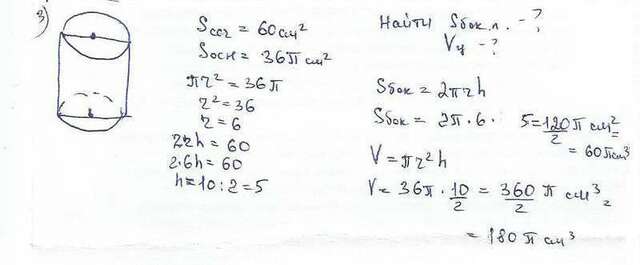 3)
Sсеч = 60 см²
Sосн = 36π см²
πr² = 36π
r² = 36
r = 6
2rh = 60
2·6h = 60
h = 10 : 2 = 5
Найти Sбок.п. - ?
Vц - ?
Sбок = 2πrh
Sбок = 2π · 6 · 5 = 120π/2 см² =
= 60π см³
V = πr²h
V = 36π · 10/2 = 360/2 π см³ =
= 180 π см³